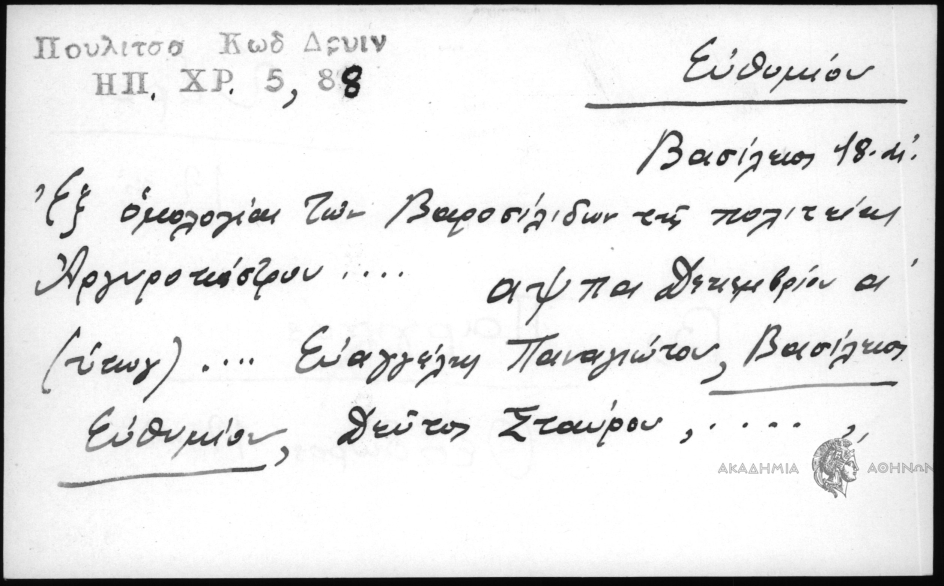 Πουλιτσα Κωδ Δρυιν
ΗΠ. ΧΡ. 5, 88
Εὐθυμίου
Βασίλειος 18. αἰ.
Ἐξ ὁμολογίαι τῶν Βαροσιλίδων τῆς πολιτείας
Ἀργυροκάστρου ....
αψπαι Δεκεμβρίου αἱ
(ὑπογ) .... Εὐαγγέλης Παναγιώτου, Βασίλειος
Εὐθυμίου, Σταύρου , . . . . ,
ΑΚΑΔΗΜΙΑ ΑΘΗΝΩΝ